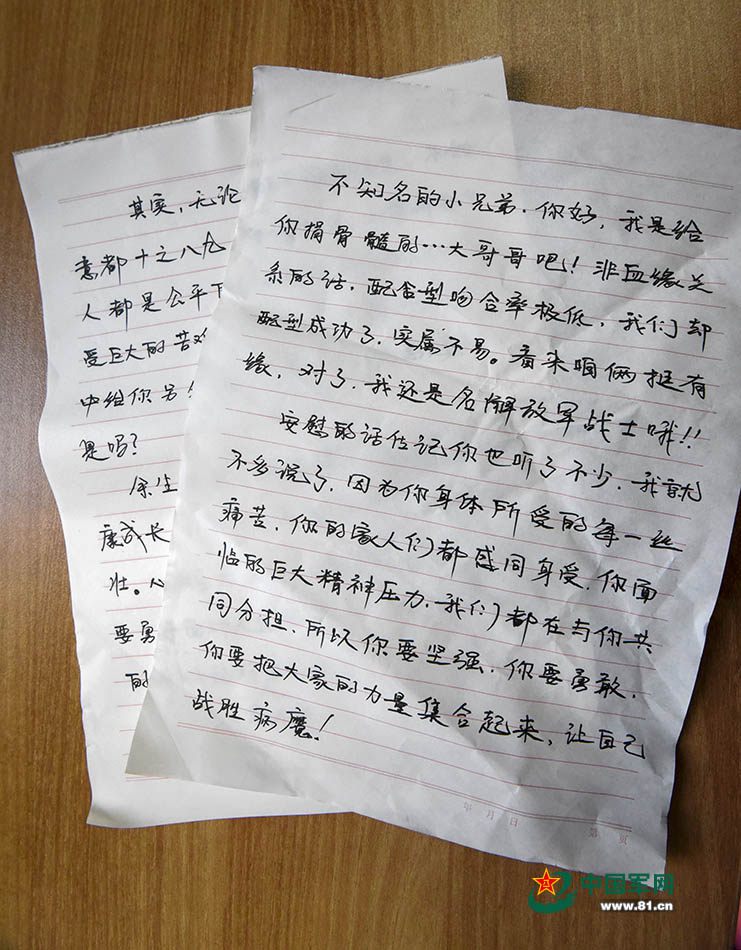 不知名的小兄弟.你好，我是给
你捐骨髓的…大哥哥吧！非血缘关
系的话，配合型吻合率极低，我们却
配型成功了，实属不易。看来咱俩挺有
缘，对了，我还是名解放军战士哦!!
安慰的话估记你也听了不少，我就
不多说了，因为你身体所受的每一丝
痛苦，你的家人们都感同身受，你面
临的巨大精神压力，我们都在与你共
同分担，所以你要坚强，你要勇敢，
你要把大家的力量集合起来，让自己
战胜病魔！
年 月 日 第 页
其实，无论
意都十之八九
人都是公平
受巨大的苦难
中给你另
是吗？
余生
康成长
壮。
要勇
的
中国军网
www.81.cn